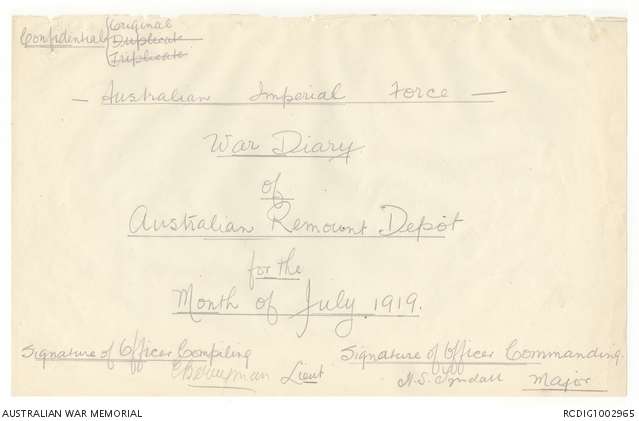 Confidential { Original
Duplicate
Triplicate
— Australian Imperial Force —
War Diary
of
Australian Remount Depôt
for the
Month of July 1919.
Signature of Officer Compiling Signature of Officer Commanding.
Lieut Major
AUSTRALIAN WAR MEMORIAL RCDIG1002965